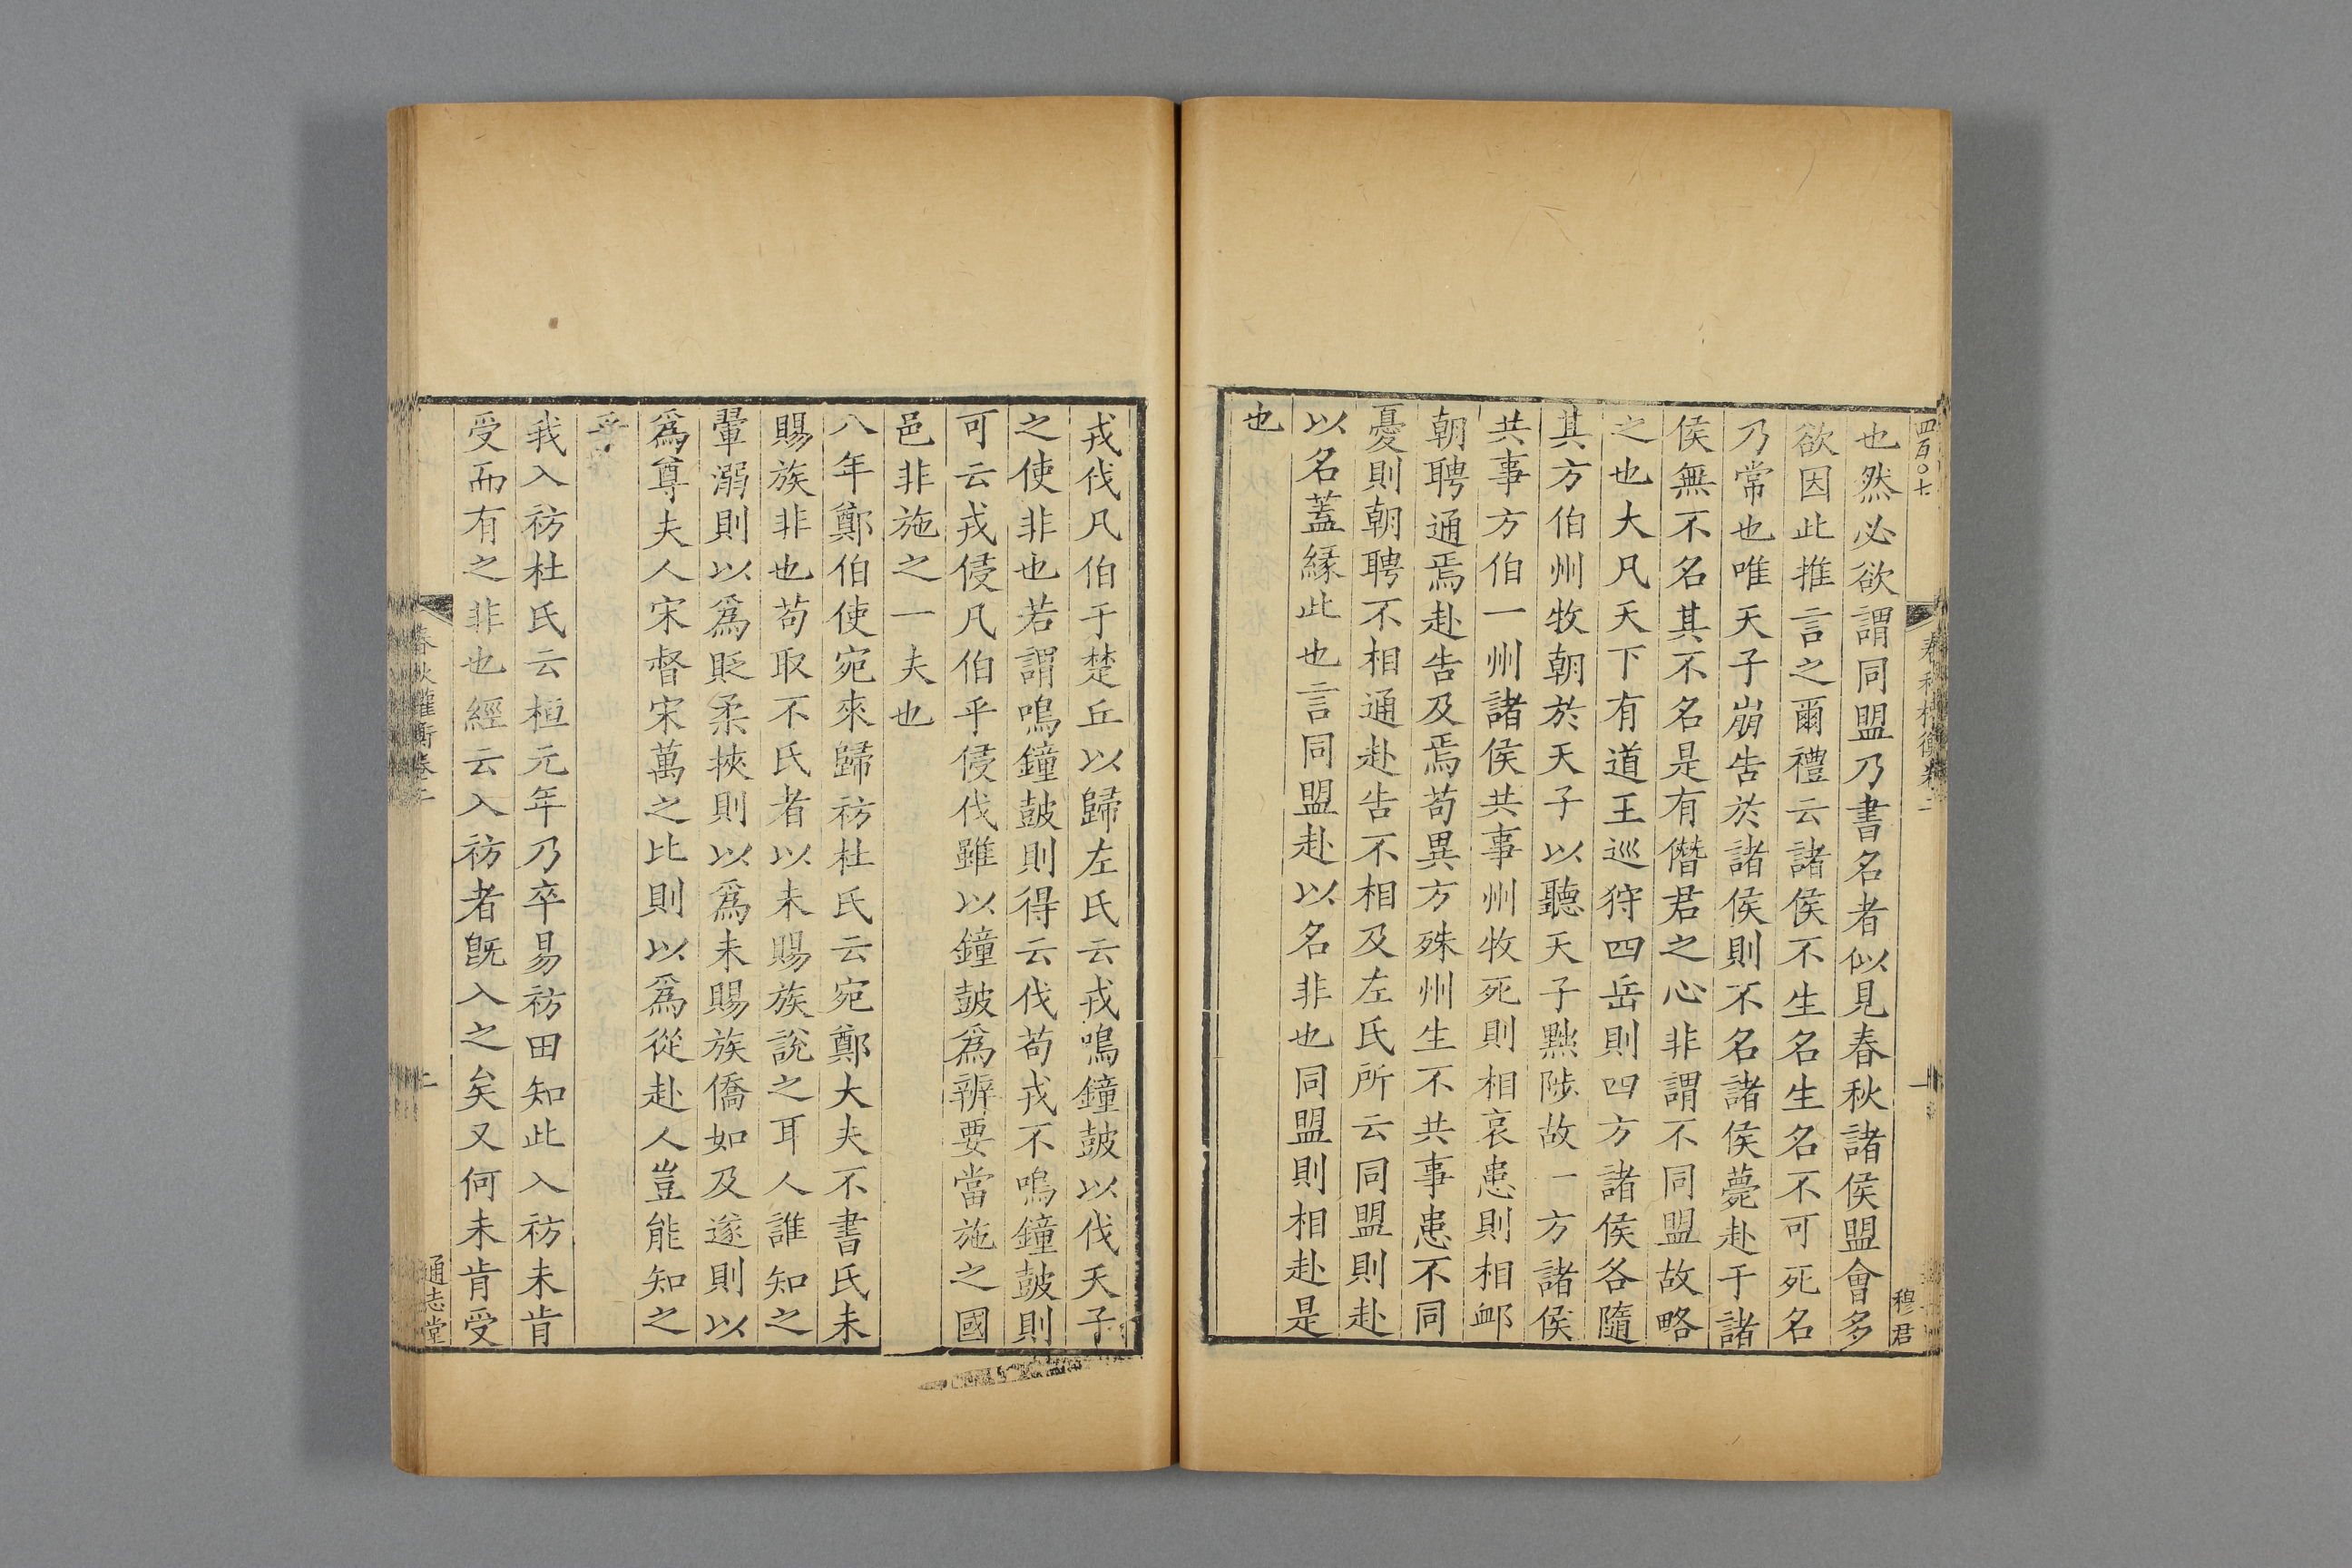 四百〇七
春秋權衡卷二
穆君
也然必欲謂同盟乃書名者似見春秋諸侯盟會多
欲因此推言之爾禮云諸侯不生名生名不可死名
乃常也唯天子崩告於諸侯則不名諸侯薨赴于諸
侯無不名其不名是有僭君之心非謂不同盟故略
之也大凡天下有道王巡狩四岳則四方諸侯各隨
其方伯州牧朝於天子以聽天子黜陟故一方諸侯
共事方伯一州諸侯共事州牧死則相哀患則相卹
朝聘通焉赴告及焉苟異方殊州生不共事患不同
憂則朝聘不相通赴告不相及左氏所云同盟則赴
以名蓋緣此也言同盟赴以名非也同盟則相赴是
也
戎伐凡伯于楚丘以歸左氏云戎鳴鐘鼓以伐天子
之使非也若謂鳴鐘鼓則得云伐苟戎不鳴鐘鼓則
可云戎侵凡伯乎侵伐雖以鐘鼓爲辨要當施之國
邑非施之一夫也
八年鄭伯使宛來歸祊杜氏云宛鄭大夫不書氏未
賜族非也苟取不氏者以未賜族說之耳人誰知之
翬溺則以爲貶柔挾則以爲未賜族僑如及遂則以
爲尊夫人宋督宋萬之比則以爲從赴人豈能知之
乎
我入祊杜氏云桓元年乃卒易祊田知此入祊未肯
受而有之非也經云入祊者旣入之矣又何未肯受
春秋權衡卷二
二
通志堂